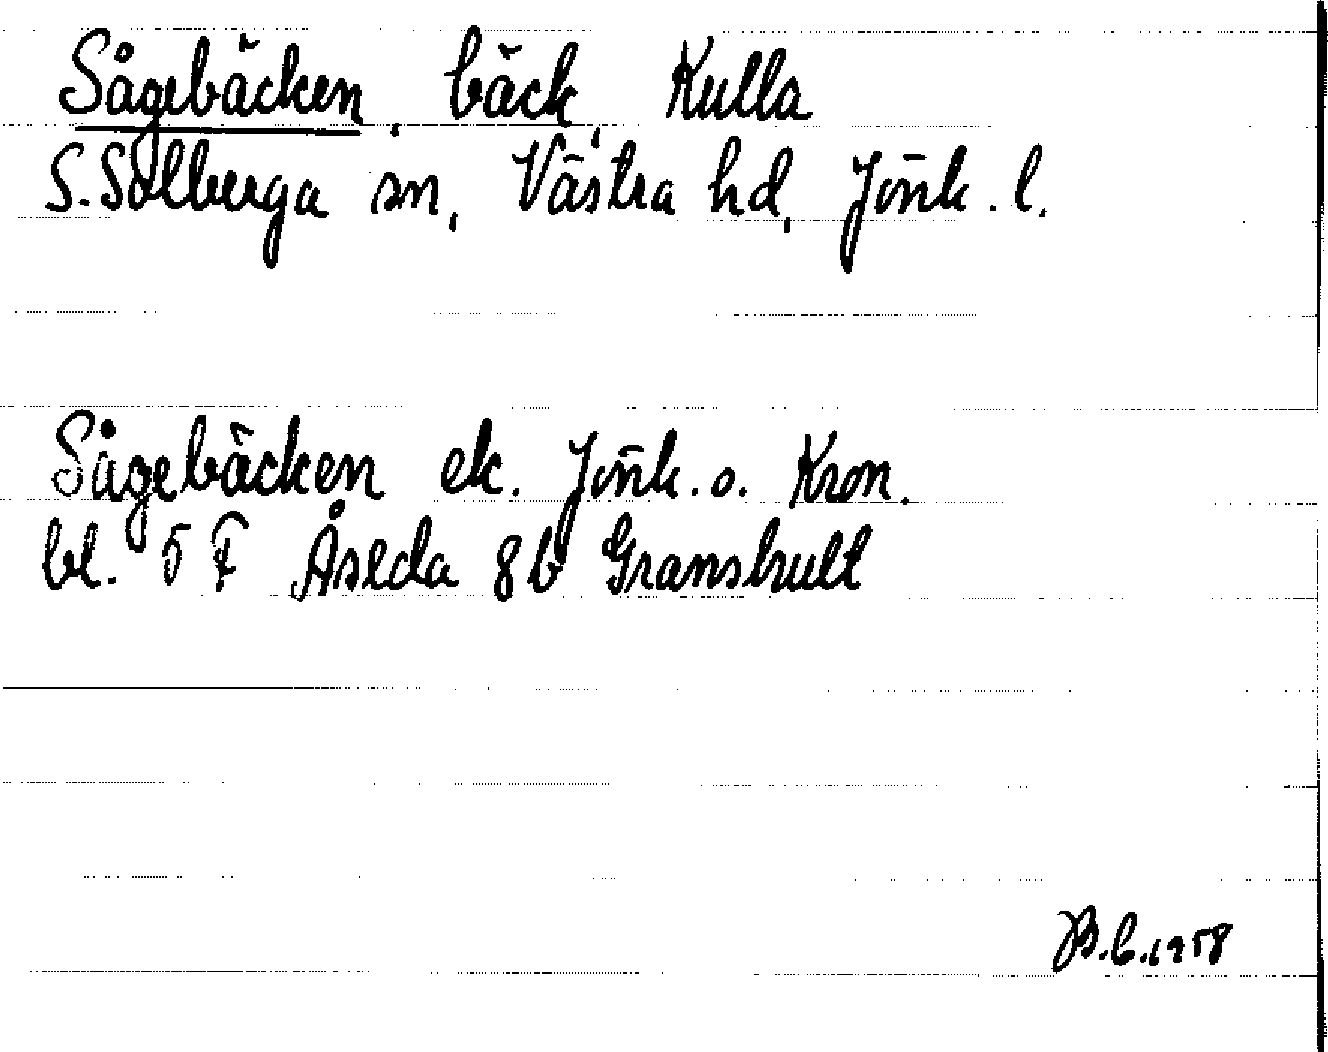 Sågebäcken, bäck, Kulla
S. Solberga sn, Västra hd, Jönk. l.
Sågebäcken ek. Jönk. o. Kron.
bl. 5 F Åseda 8b Granshult
B.C. 1958